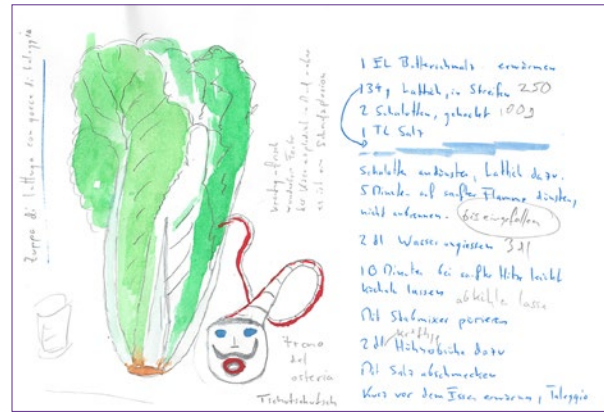 Zuppa di lattuga con gocce di taleggio
1 EL Butterschmalz erwärmen
134g Lattich, in Streifen 250
2 Schalotten, gehackt 100g
1 TL Salz
Schalotte andünsten, Lattich dazu.
5 Minuten auf sanfter Flamme dünsten,
nicht anbrennen. bis eingefallen
2 dl Wasser angiessen 3 dl
10 Minuten bei sanfter Hitze leicht
köcheln lassen abkühlen lassen
Mit Stabmixer pürieren
kräftige
2 dl Hühnerbrühe dazu
Mit Salz abschmecken
Kurz vor dem Essen erwärmen, Taleggio
trono
del
osteria
Tschotschutsch